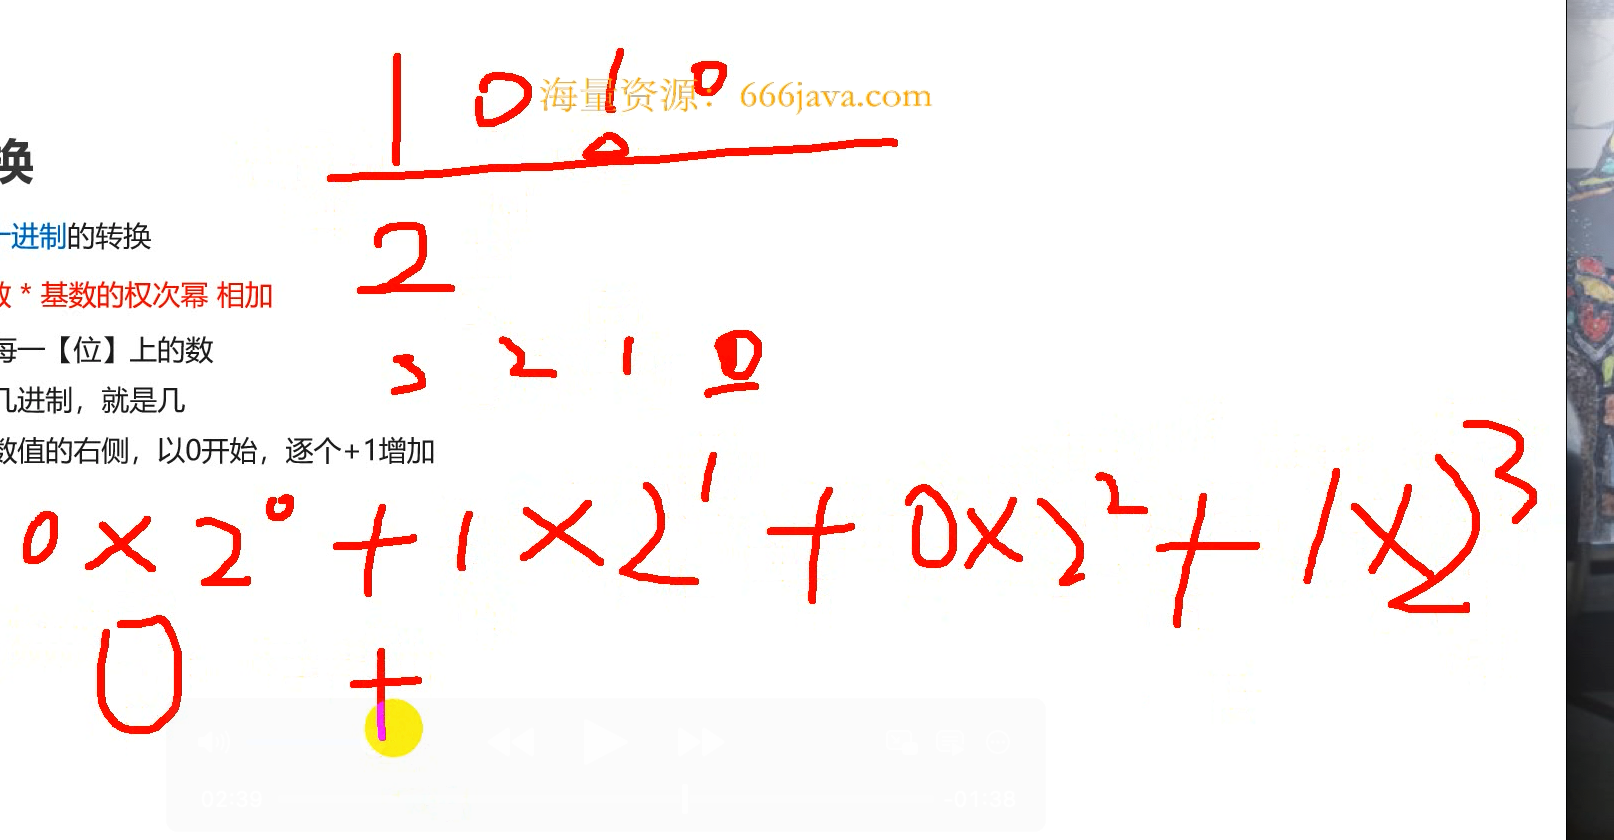 1 0 1 0
海量资源：666java.com
0
换
2
十进制的转换
数 * 基数的权次幂 相加
3 2 1 0
每一【位】上的数
几进制，就是几
数值的右侧，以0开始，逐个+1增加
0 × 2⁰ + 1 × 2¹ + 0 × 2² + 1 × 2³
0 +
02:39 -01:38